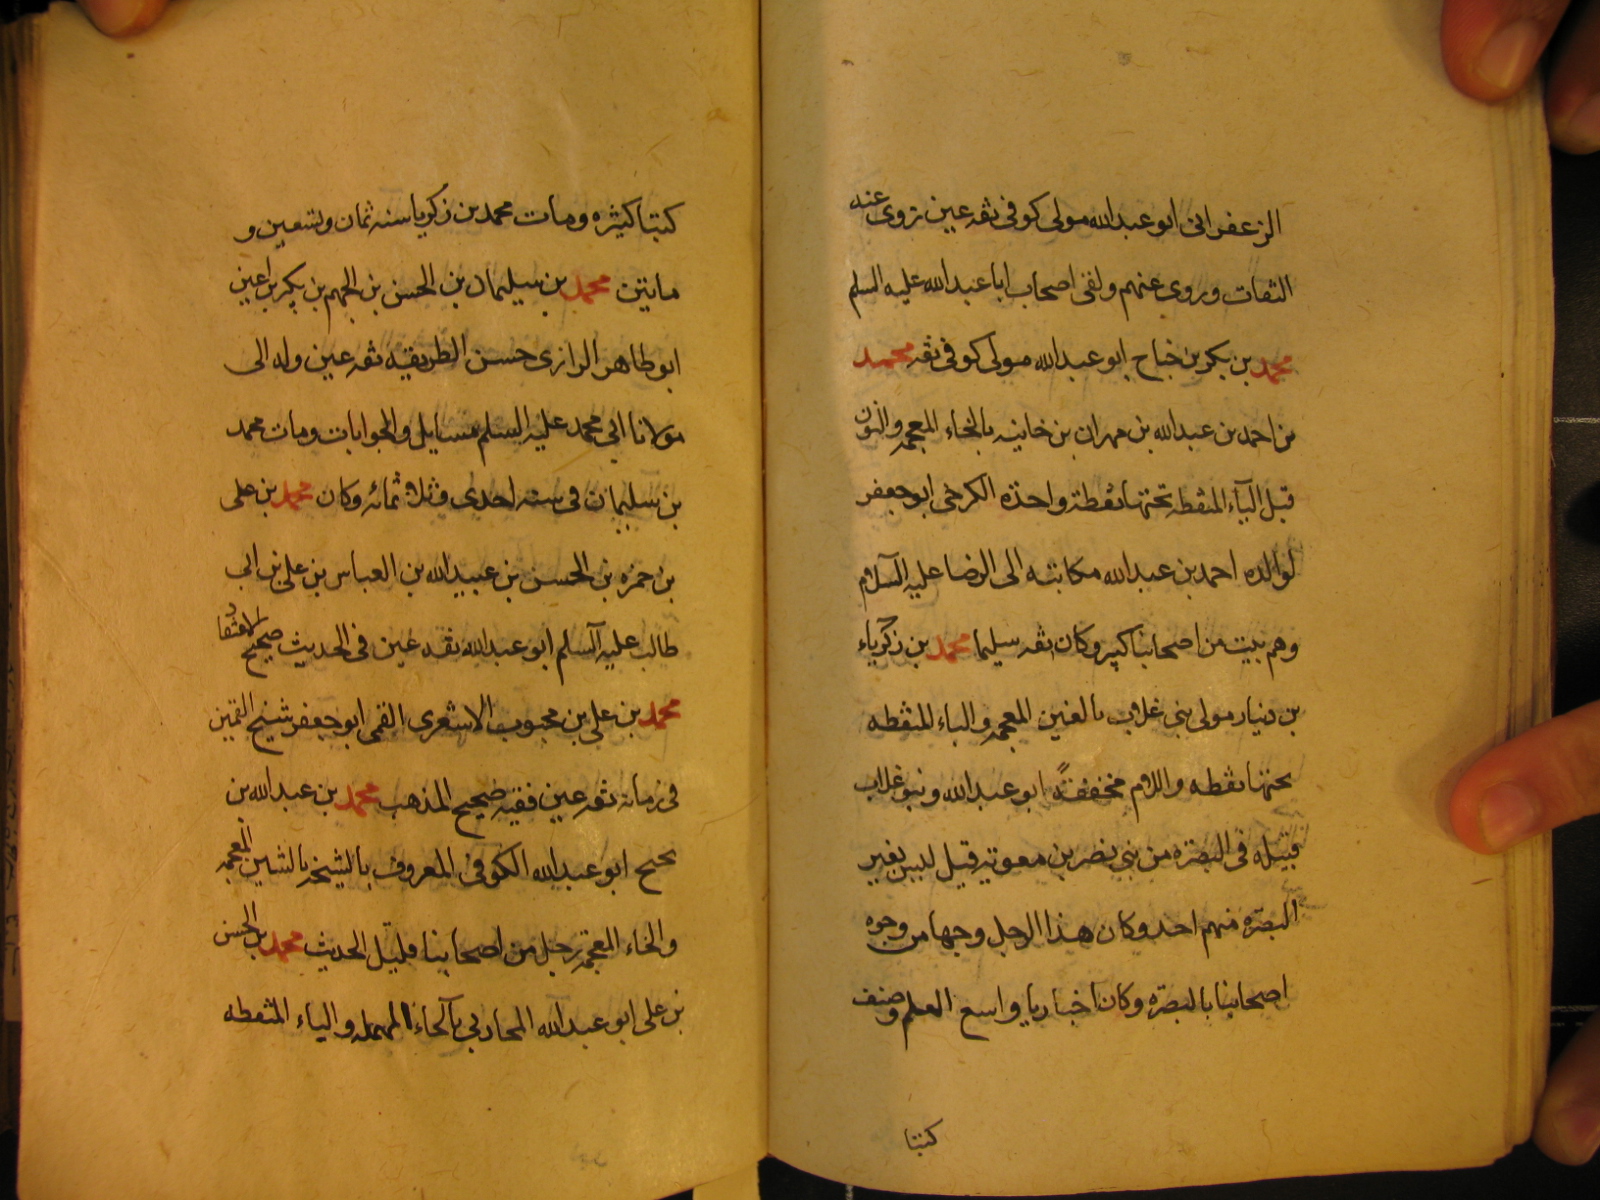 الزعفرانى ابو عبدالله مولى كوفى ثقه عين روى عنه
الثقات وروى عنهم ولقى اصحاب ابا عبدالله عليه السلم
محمد بن بكر بن جناح ابو عبدالله مولى كوفى ثقه محمد
بن احمد بن عبدالله بن مهران بن خانبه بالخاء المعجمه والنون
قبل الباء المنقطه تحتها نقطة واحدة الكرخى ابو جعفر
لوالده احمد بن عبدالله مكاتبه الى الرضا عليه السلام
وهم بيت من اصحابنا كبير وكان ثقه سليما محمد بن زكرياء
بن دينار مولى بنى غلاب بالغين المعجمه والباء المنقطه
تحتها نقطه واللام مخففةً ابو عبدالله وبنو غلاب
قبيله فى البصره من بنى نصر بن معويه قيل ليس بغير
البصره منهم احد وكان هذا الرجل وجها من وجوه
اصحابنا بالبصره وكان اخباريا واسع العلم وصنف
كتبا
كتبا كثيره ومات محمد بن زكريا سنه ثمان وتسعين و
مايتين محمد بن سليمان بن الحسن بن الجهم بن بكير بن اعين
ابو طاهر الرازى حسن الطريقه ثقه عين وله الى
مولانا ابى محمد عليه السلم مسايل والجوابات ومات محمد
بن سليمان فى سنه احدى وثلاثمائه وكان محمد بن على
بن حمزه بن الحسن بن عبيدالله بن العباس بن على بن ابى
طالب عليه السلم ابو عبدالله ثقه عين فى الحديث صحيح الاعتقاد
محمد بن على بن محبوب الاشعرى القمى ابو جعفر شيخ القميين
فى زمانه ثقه عين فقيه صحيح المذهب محمد بن عبدالله بن
نجيح ابو عبدالله الكوفى المعروف بالشيخه بالشين المعجمه
والخاء المعجمه رجل من اصحابنا قليل الحديث محمد بن الحسن
بن على ابو عبدالله المحاربى بالحاء المهمله والباء المنقطه